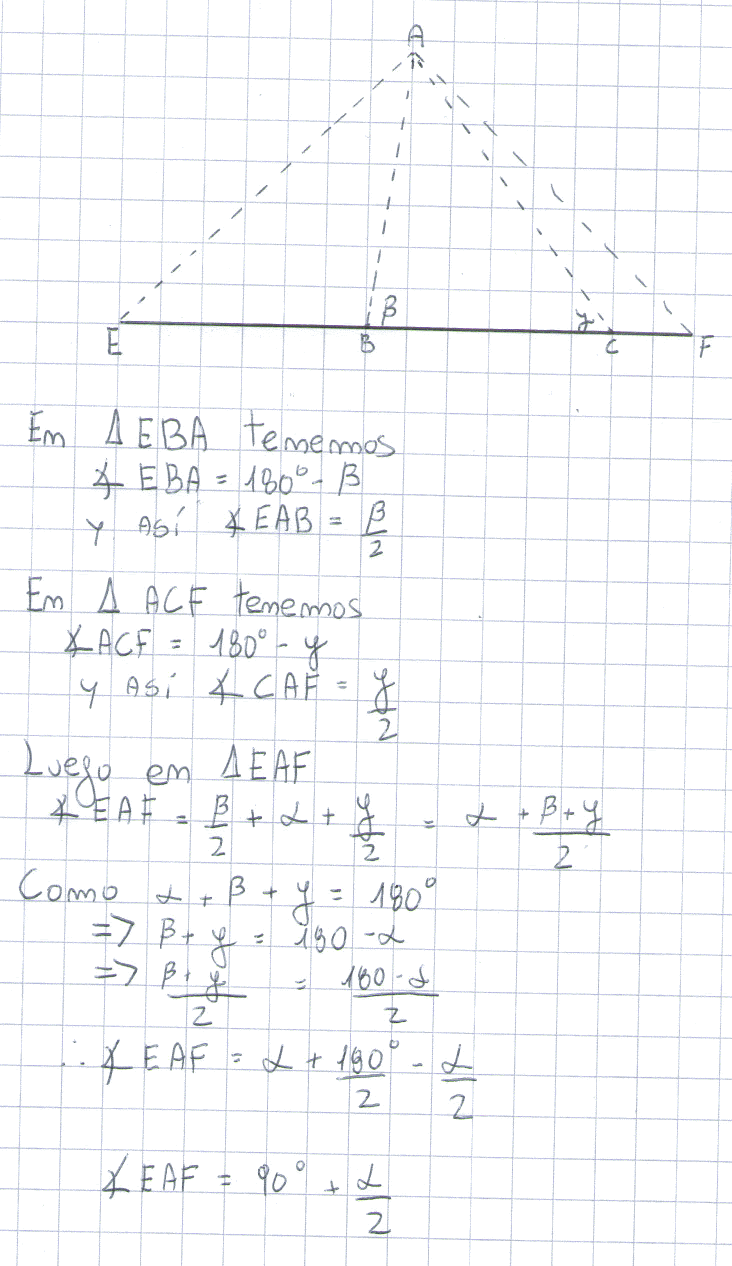 A
β y
E B C F
Em Δ EBA tenemos
∡ EBA = 180° - β
y Así ∡ EAB = β/2
Em Δ ACF tenemos
∡ ACF = 180° - y
y Así ∡ CAF = y/2
Luego em Δ EAF
∡ EAF = β/2 + α + y/2 = α + (β+y)/2
Como α + β + y = 180°
=> β + y = 180 - α
=> (β+y)/2 = (180-α)/2
∴ ∡ EAF = α + 180°/2 - α/2
∡ EAF = 90° + α/2